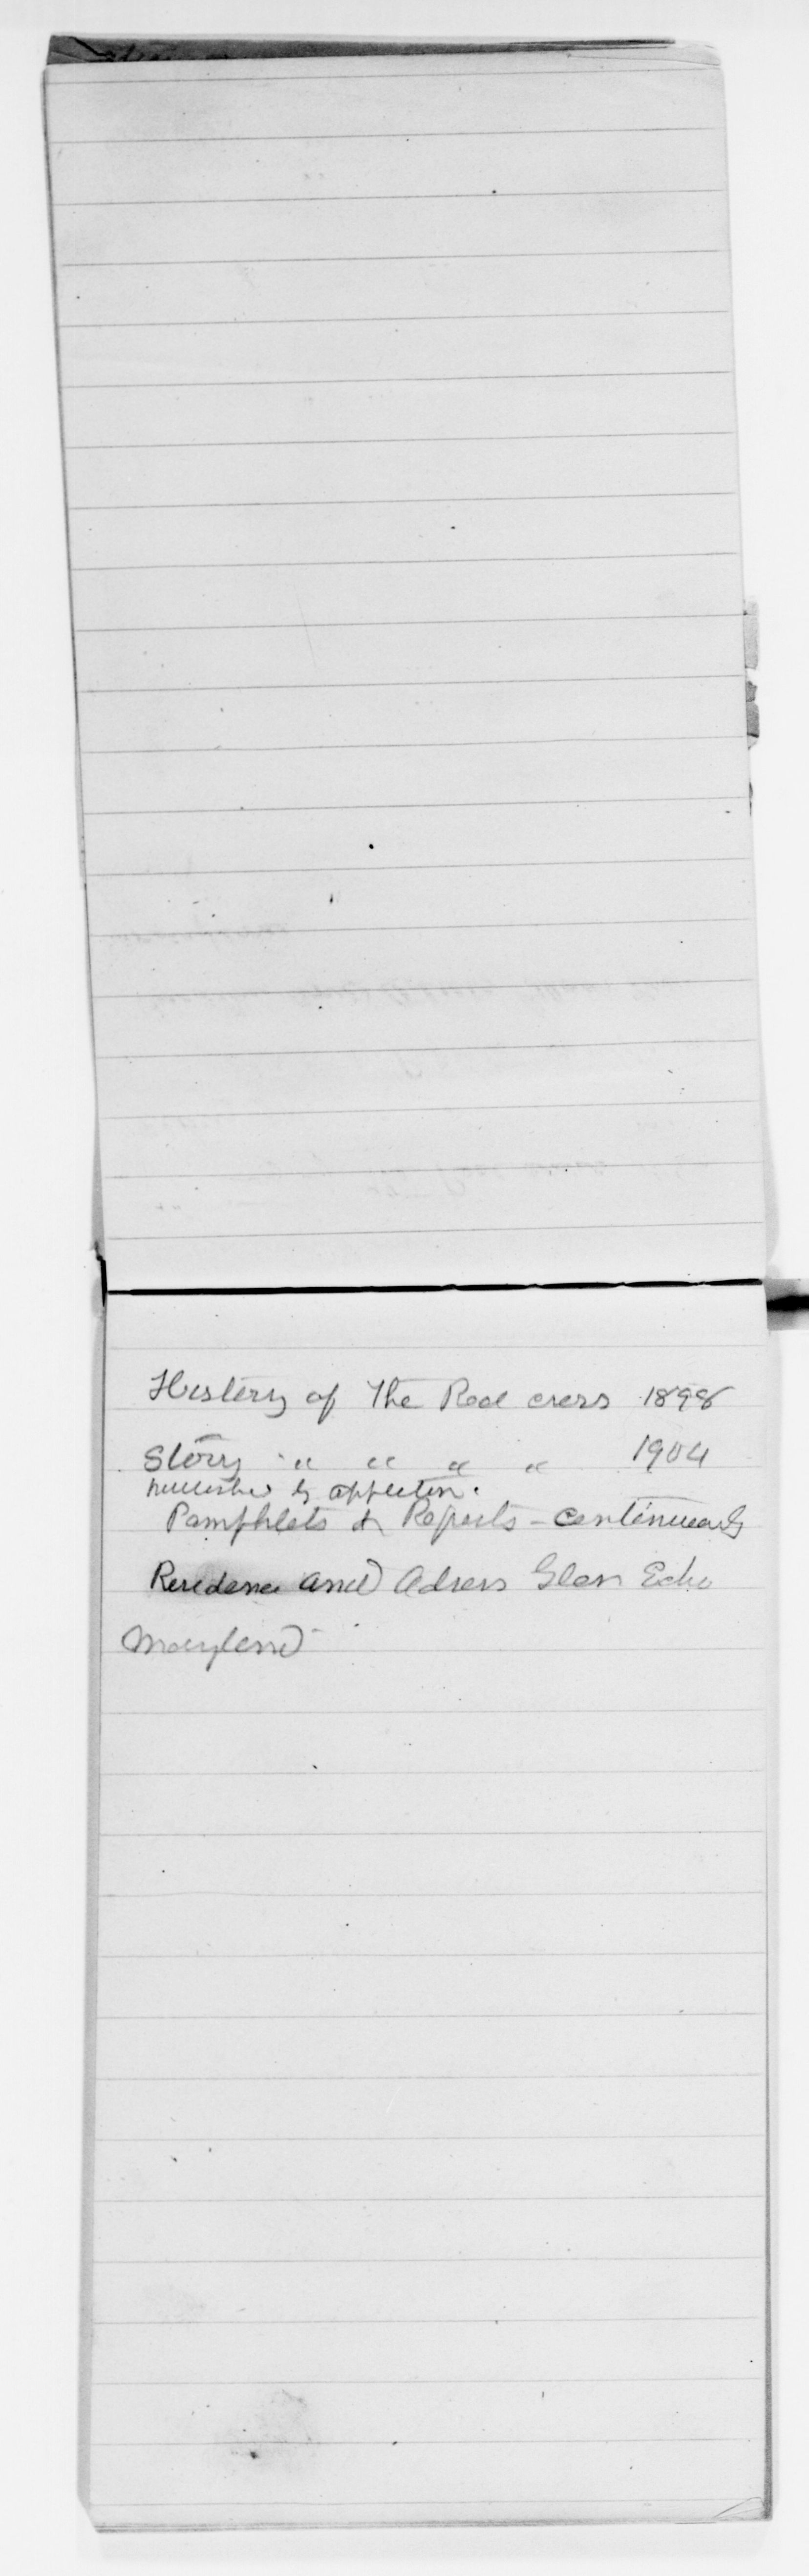 History of The Red cross 1898
Story " " " " 1904
published by appleton.
Pamphlets & Reports - continually
Residence and Adress Glen Echo
Maryland -